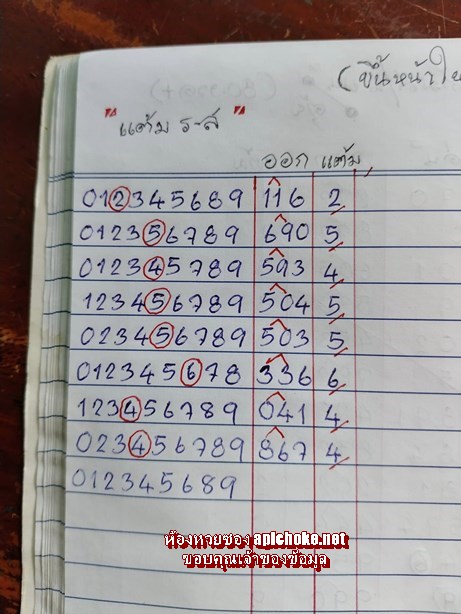 (ขึ้นหน้าให
"แต้ม ร-ส"
ออก แต้ม
012345689 116 2
012356789 690 5
012345789 593 4
123456789 504 5
023456789 503 5
012345678 336 6
123456789 041 4
023456789 867 4
012345689
ห้องหวยซอง apichoke.net
ขอบคุณเจ้าของข้อมูล